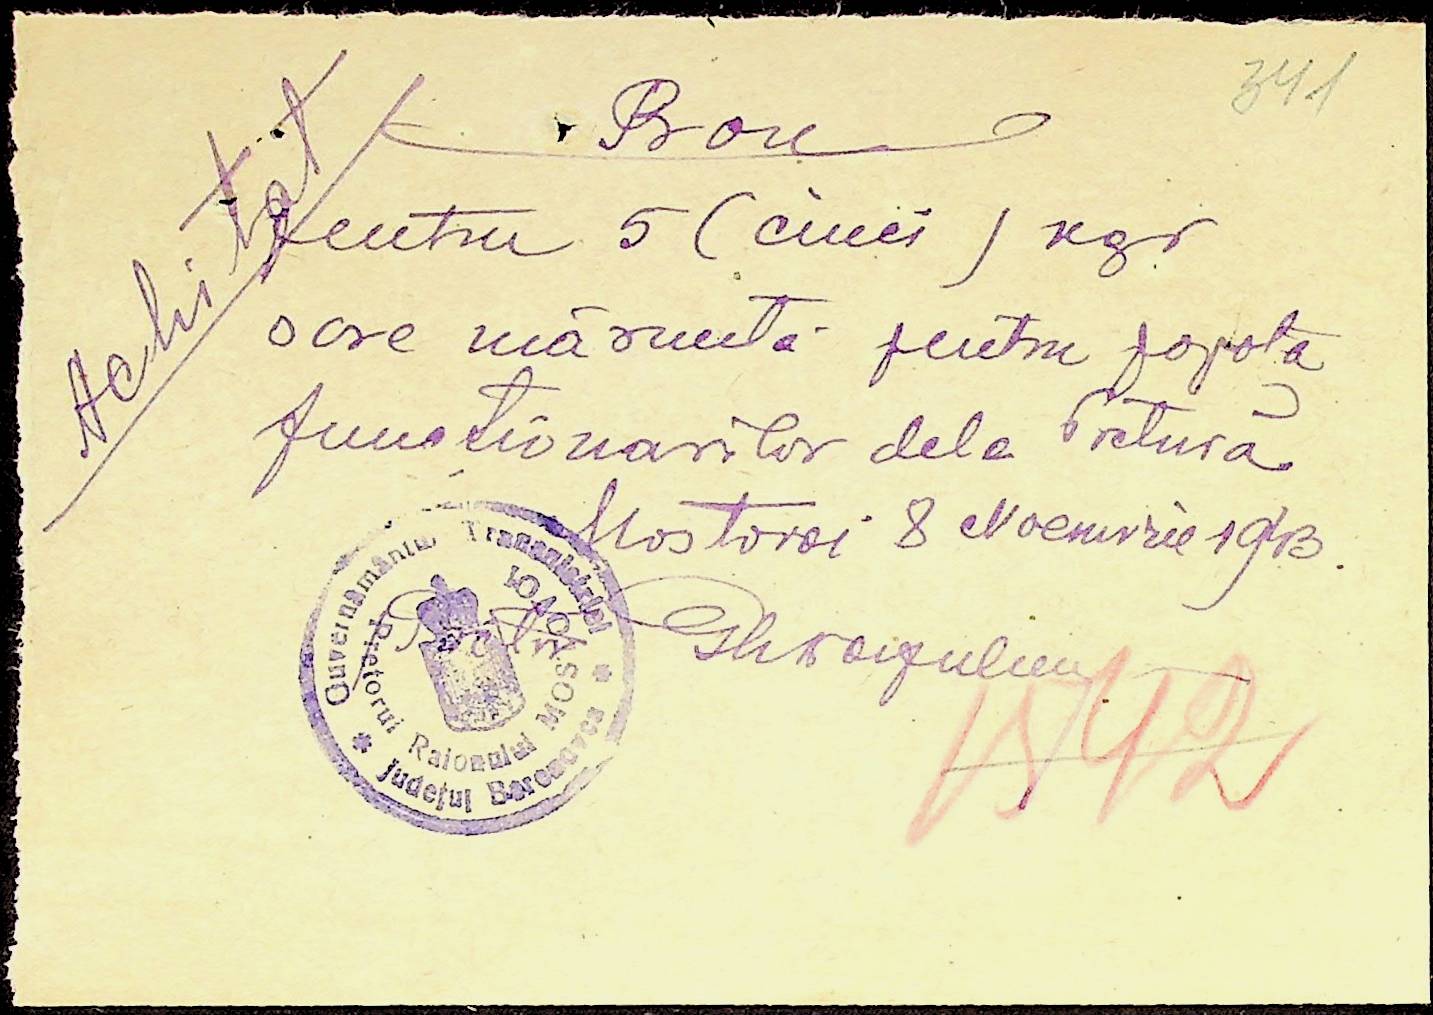 341
Bon
Achitat
pentru 5 (cinci) kgr
sare măruntă pentru popota
funcționarilor dela Pretură
Mostovoi 8 Noemvrie 1943.
Pretor
Guvernământul Transnistriei
Pretorul Raionului MOSTOVOI
Județul Berezovca
1542